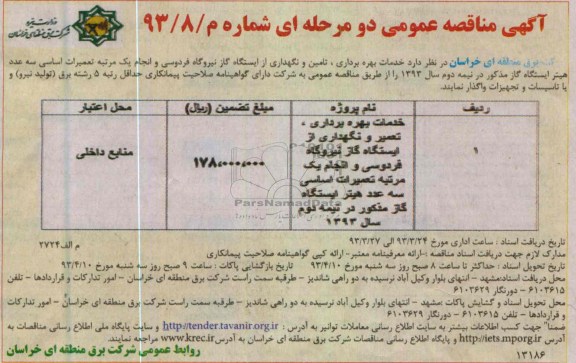 وزارت نیرو
شرکت برق منطقه ای خراسان
آگهی مناقصه عمومی دو مرحله ای شماره م/۹۳/۸
شرکت برق منطقه ای خراسان در نظر دارد خدمات بهره برداری ، تامین و نگهداری از ایستگاه گاز نیروگاه فردوسی و انجام یک مرتبه تعمیرات اساسی سه عدد
هیتر ایستگاه گاز مذکور در نیمه دوم سال ۱۳۹۳ را از طریق مناقصه عمومی به شرکت دارای گواهینامه صلاحیت پیمانکاری حداقل رتبه ۵ رشته برق (تولید نیرو) و
یا تاسیسات و تجهیزات واگذار نمایند.
ردیف نام پروژه مبلغ تضمین (ریال) محل اعتبار
۱ خدمات بهره برداری ،
تعمیر و نگهداری از
ایستگاه گاز نیروگاه
فردوسی و انجام یک
مرتبه تعمیرات اساسی
سه عدد هیتر ایستگاه
گاز مذکور در نیمه دوم
سال ۱۳۹۳
۱۷۸,۰۰۰,۰۰۰ منابع داخلی
ParsNamadData
تاریخ دریافت اسناد : ساعت اداری مورخ ۹۳/۳/۲۴ الی ۹۳/۳/۲۷
م الف ۲۷۲۴
مدارک لازم جهت دریافت اسناد مناقصه :-ارائه معرفینامه معتبر- ارائه کپی گواهینامه صلاحیت پیمانکاری
تاریخ تحویل اسناد : حداکثر تا ساعت ۸ صبح روز سه شنبه مورخ ۹۳/۴/۱۰ تاریخ بازگشایی پاکات : ساعت ۹ صبح روز سه شنبه مورخ ۹۳/۴/۱۰
محل دریافت اسناد:مشهد - انتهای بلوار وکیل آباد نرسیده به دو راهی شاندیز - طرقبه سمت راست شرکت برق منطقه ای خراسان - امور تدارکات و قراردادها - تلفن
۶۱۰۳۶۱۵ – دورنگار ۶۱۰۳۶۲۹
محل تحویل اسناد و گشایش پاکات :مشهد - انتهای بلوار وکیل آباد نرسیده به دو راهی شاندیز – طرقبه سمت راست شرکت برق منطقه ای خراسان – امور تدارکات
و قراردادها – تلفن ۶۱۰۳۶۱۵ – دورنگار ۶۱۰۳۶۲۹
ضمنا" جهت کسب اطلاعات بیشتر به سایت اطلاع رسانی معاملات توانیر به آدرس : http://tender.tavanir.org.ir و سایت پایگاه ملی اطلاع رسانی مناقصات به
آدرس http://iets.mporg.ir و یا سایت اطلاع رسانی شرکت برق منطقه ای خراسان به آدرس www.krec.ir مراجعه نمایند.
۱۳۱۸۶
روابط عمومی شرکت برق منطقه ای خراسان